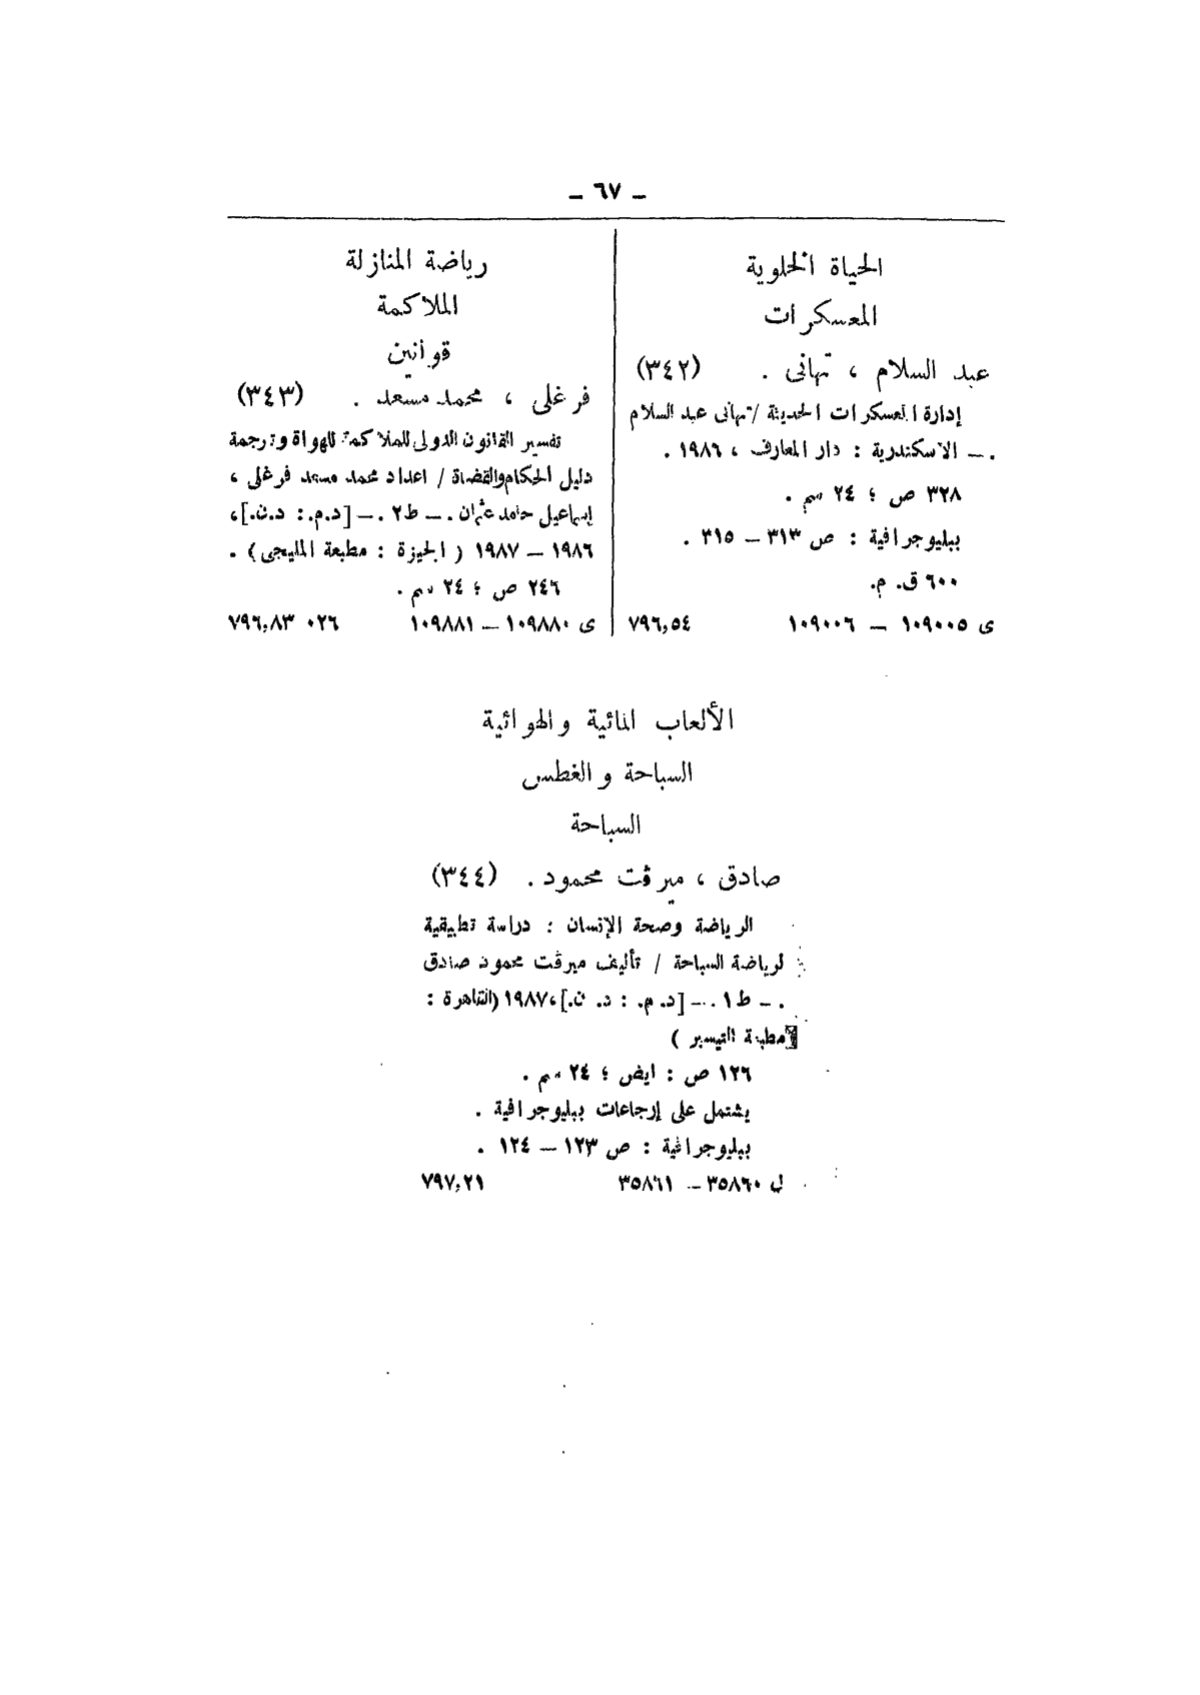 ـ ٦٧ ـ
الحياة الخلوية
المعسكرات
عبد السلام ، تهانى . (٣٤٢)
إدارة المعسكرات الحديثة / تهانى عبد السلام
. ــ الاسكندرية : دار المعارف ، ١٩٨٦ .
٣٢٨ ص ؛ ٢٤ سم .
ببليوجرافية : ص ٣١٣ ــ ٣١٥ .
٦٠٠ ق. م.
ى ١٠٩٠٠٥ ــ ١٠٩٠٠٦ ٧٩٦,٥٤
رياضة المنازلة
الملاكمة
قوانين
فرغلى ، محمد مسعد . (٣٤٣)
تفسير القانون الدولى للملاكمة للهواة وترجمة
دليل الحكام والقضاة / اعداد محمد مسعد فرغلى ،
إسماعيل حامد عثمان . ــ ط٢ . ــ [د.م. : د.ن.]،
١٩٨٦ ــ ١٩٨٧ ( الجيزة : مطبعة المليجى ) .
٢٤٦ ص ؛ ٢٤ سم .
ى ١٠٩٨٨٠ ــ ١٠٩٨٨١ ٧٩٦,٨٣ ٠٢٦
الألعاب المائية والهوائية
السباحة والغطس
السباحة
صادق ، ميرڤت محمود . (٣٤٤)
الرياضة وصحة الإنسان : دراسة تطبيقية
لرياضة السباحة / تأليف ميرڤت محمود صادق
. ــ ط١ . ــ [د. م. : د. ن.]، ١٩٨٧ (القاهرة :
مطبعة التيسير )
١٢٦ ص : ايض ؛ ٢٤ سم .
يشتمل على إرجاعات ببليوجرافية .
ببليوجرافية : ص ١٢٣ ــ ١٢٤ .
ل ٣٥٨٦٠ ــ ٣٥٨٦١ ٧٩٧,٢١